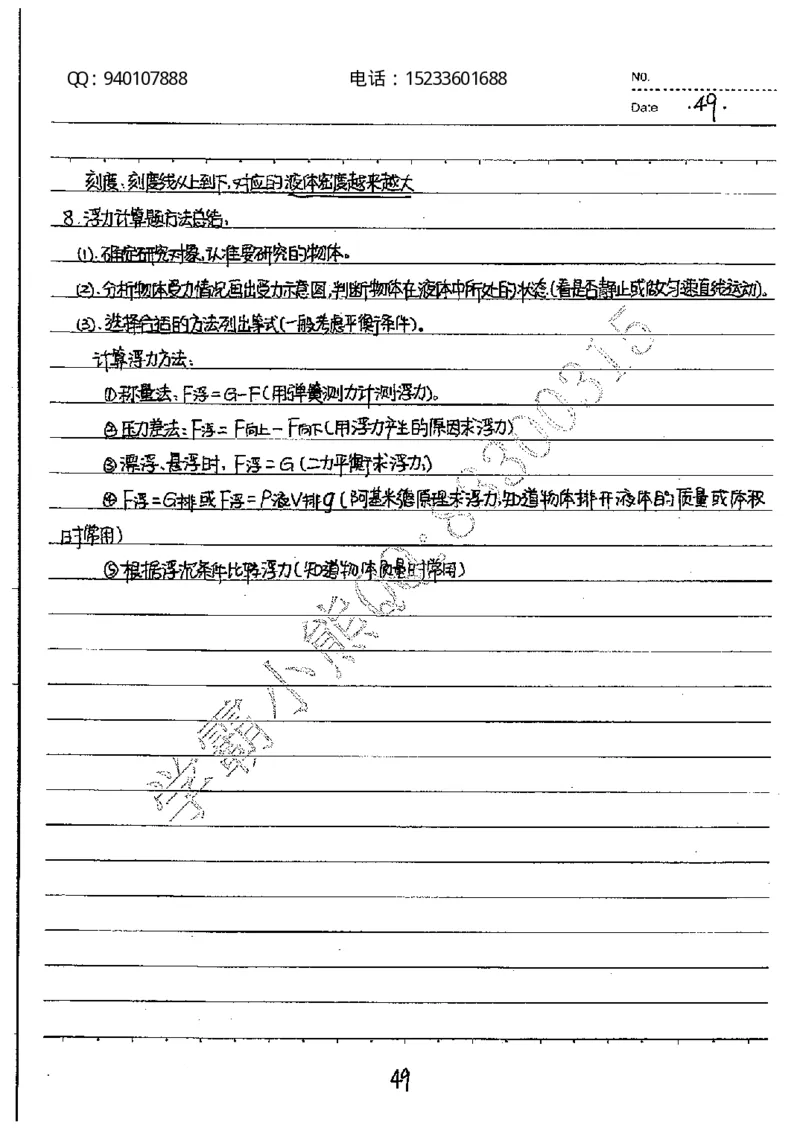 QQ：940107888 电话：15233601688 No.
Date ·49·
刻度：刻度线从上到下，对应的液体密度越来越大
8.浮力计算题方法总结：
(1).确定研究对象，认准要研究的物体。
(2).分析物体受力情况画出受力示意图，判断物体在液体中所处的状态(看是否静止或做匀速直线运动)。
(3).选择合适的方法列出等式(一般考虑平衡条件)。
计算浮力方法：
①称量法：F浮=G-F(用弹簧测力计测浮力)。
②压力差法：F浮=F向上-F向下(用浮力产生的原因求浮力)
③漂浮、悬浮时，F浮=G(二力平衡求浮力；)
④F浮=G排或F浮=ρ液V排g(阿基米德原理求浮力，知道物体排开液体的质量或体积
时常用)
⑤根据浮沉条件比较浮力(知道物体质量时常用)
学霸小熊QQ:8300315
49